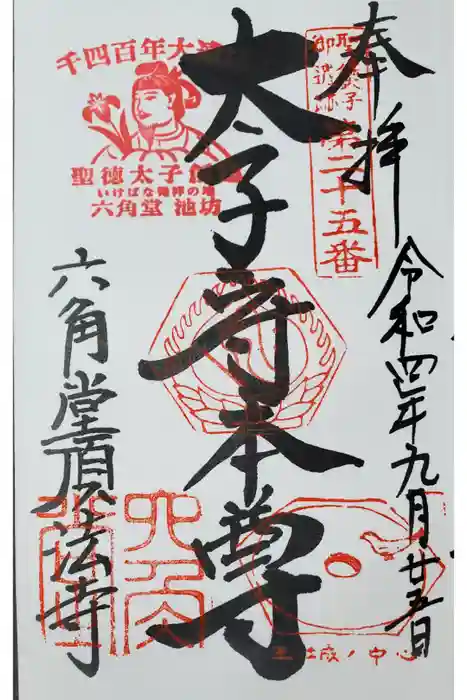 奉拝
令和四年九月廿五日
聖徳太子
御遺跡
第二十五番
太子守本尊
千四百年大遠
聖徳太子
いけばな発祥の地
六角堂 池坊
六角堂頂法寺
六角
王城ノ中心